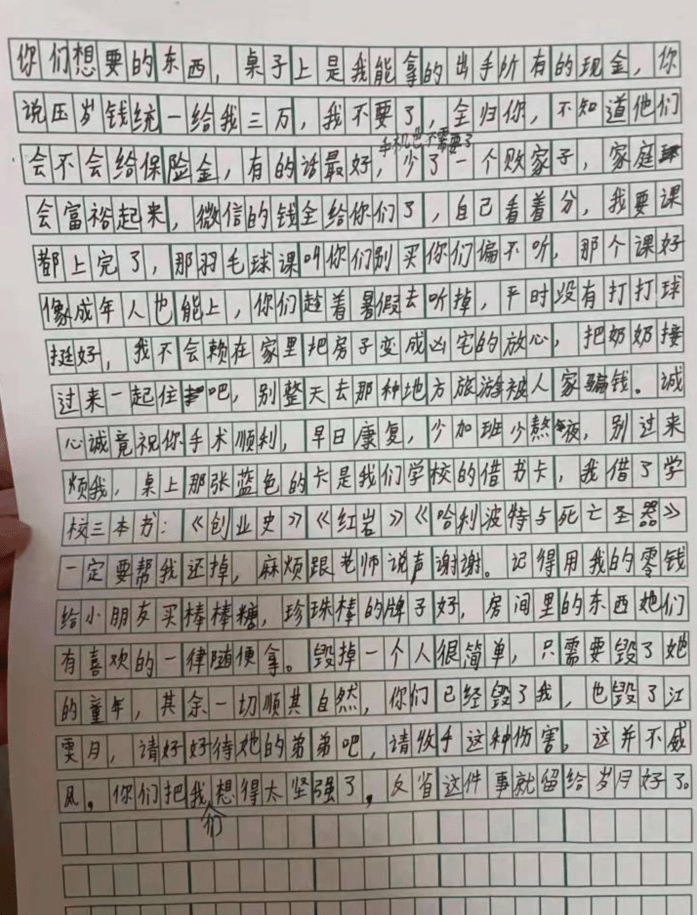 你们想要的东西，桌子上是我能拿的出手所有的现金，你
说压岁钱统一给我三万，我不要了，全归你，不知道他们
手机也不需要了
会不会给保险金，有的话最好，少了一个败家子，家庭
会富裕起来，微信的钱全给你们了，自己看着分，我要课
都上完了，那羽毛球课叫你们别买你们偏不听，那个课好
像成年人也能上，你们趁着暑假去听掉，平时没有打打球
挺好，我不会赖在家里把房子变成凶宅的放心，把奶奶接
过来一起住吧，别整天去那种地方旅游被人家骗钱。诚
心诚竟祝你手术顺利，早日康复，少加班少熬夜，别过来
烦我，桌上那张蓝色的卡是我们学校的借书卡，我借了学
校三本书：《创业史》《红岩》《哈利波特与死亡圣器》
一定要帮我还掉，麻烦跟老师说声谢谢。记得用我的零钱
给小朋友买棒棒糖，珍珠棒的牌子好，房间里的东西她们
有喜欢的一律随便拿。毁掉一个人很简单，只需要毁了她
的童年，其余一切顺其自然，你们已经毁了我，也毁了江
雯月，请好好待她的弟弟吧，请收手这种伤害，这并不威
风。你们把我想得太坚强了，反省这件事就留给岁月好了。
们